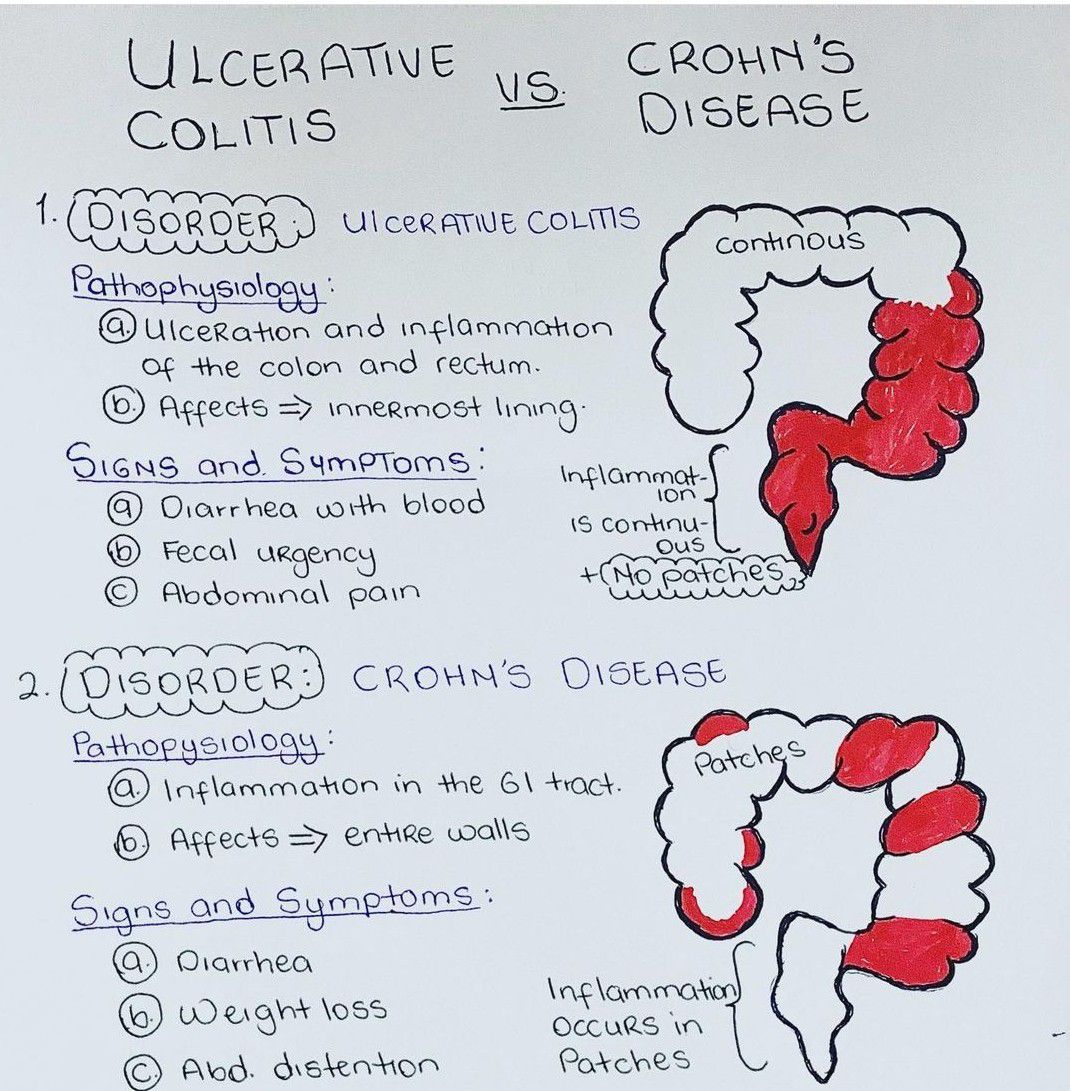 ULCERATIVE
COLITIS
VS.
CROHN'S
DISEASE
1. DISORDER: ULCERATIVE COLITIS
Pathophysiology:
a. Ulceration and inflammation
of the colon and rectum.
b. Affects => innermost lining.
Signs and Symptoms:
a Diarrhea with blood
b Fecal urgency
c Abdominal pain
Continous
Inflammat-
ion
is continu-
ous
+ (No patches)
2. DISORDER: CROHN'S DISEASE
Pathopysiology:
a. Inflammation in the GI tract.
b. Affects => entire walls
Signs and Symptoms:
a. Diarrhea
b. Weight loss
c. Abd. distention
Patches
Inflammation
occurs in
Patches